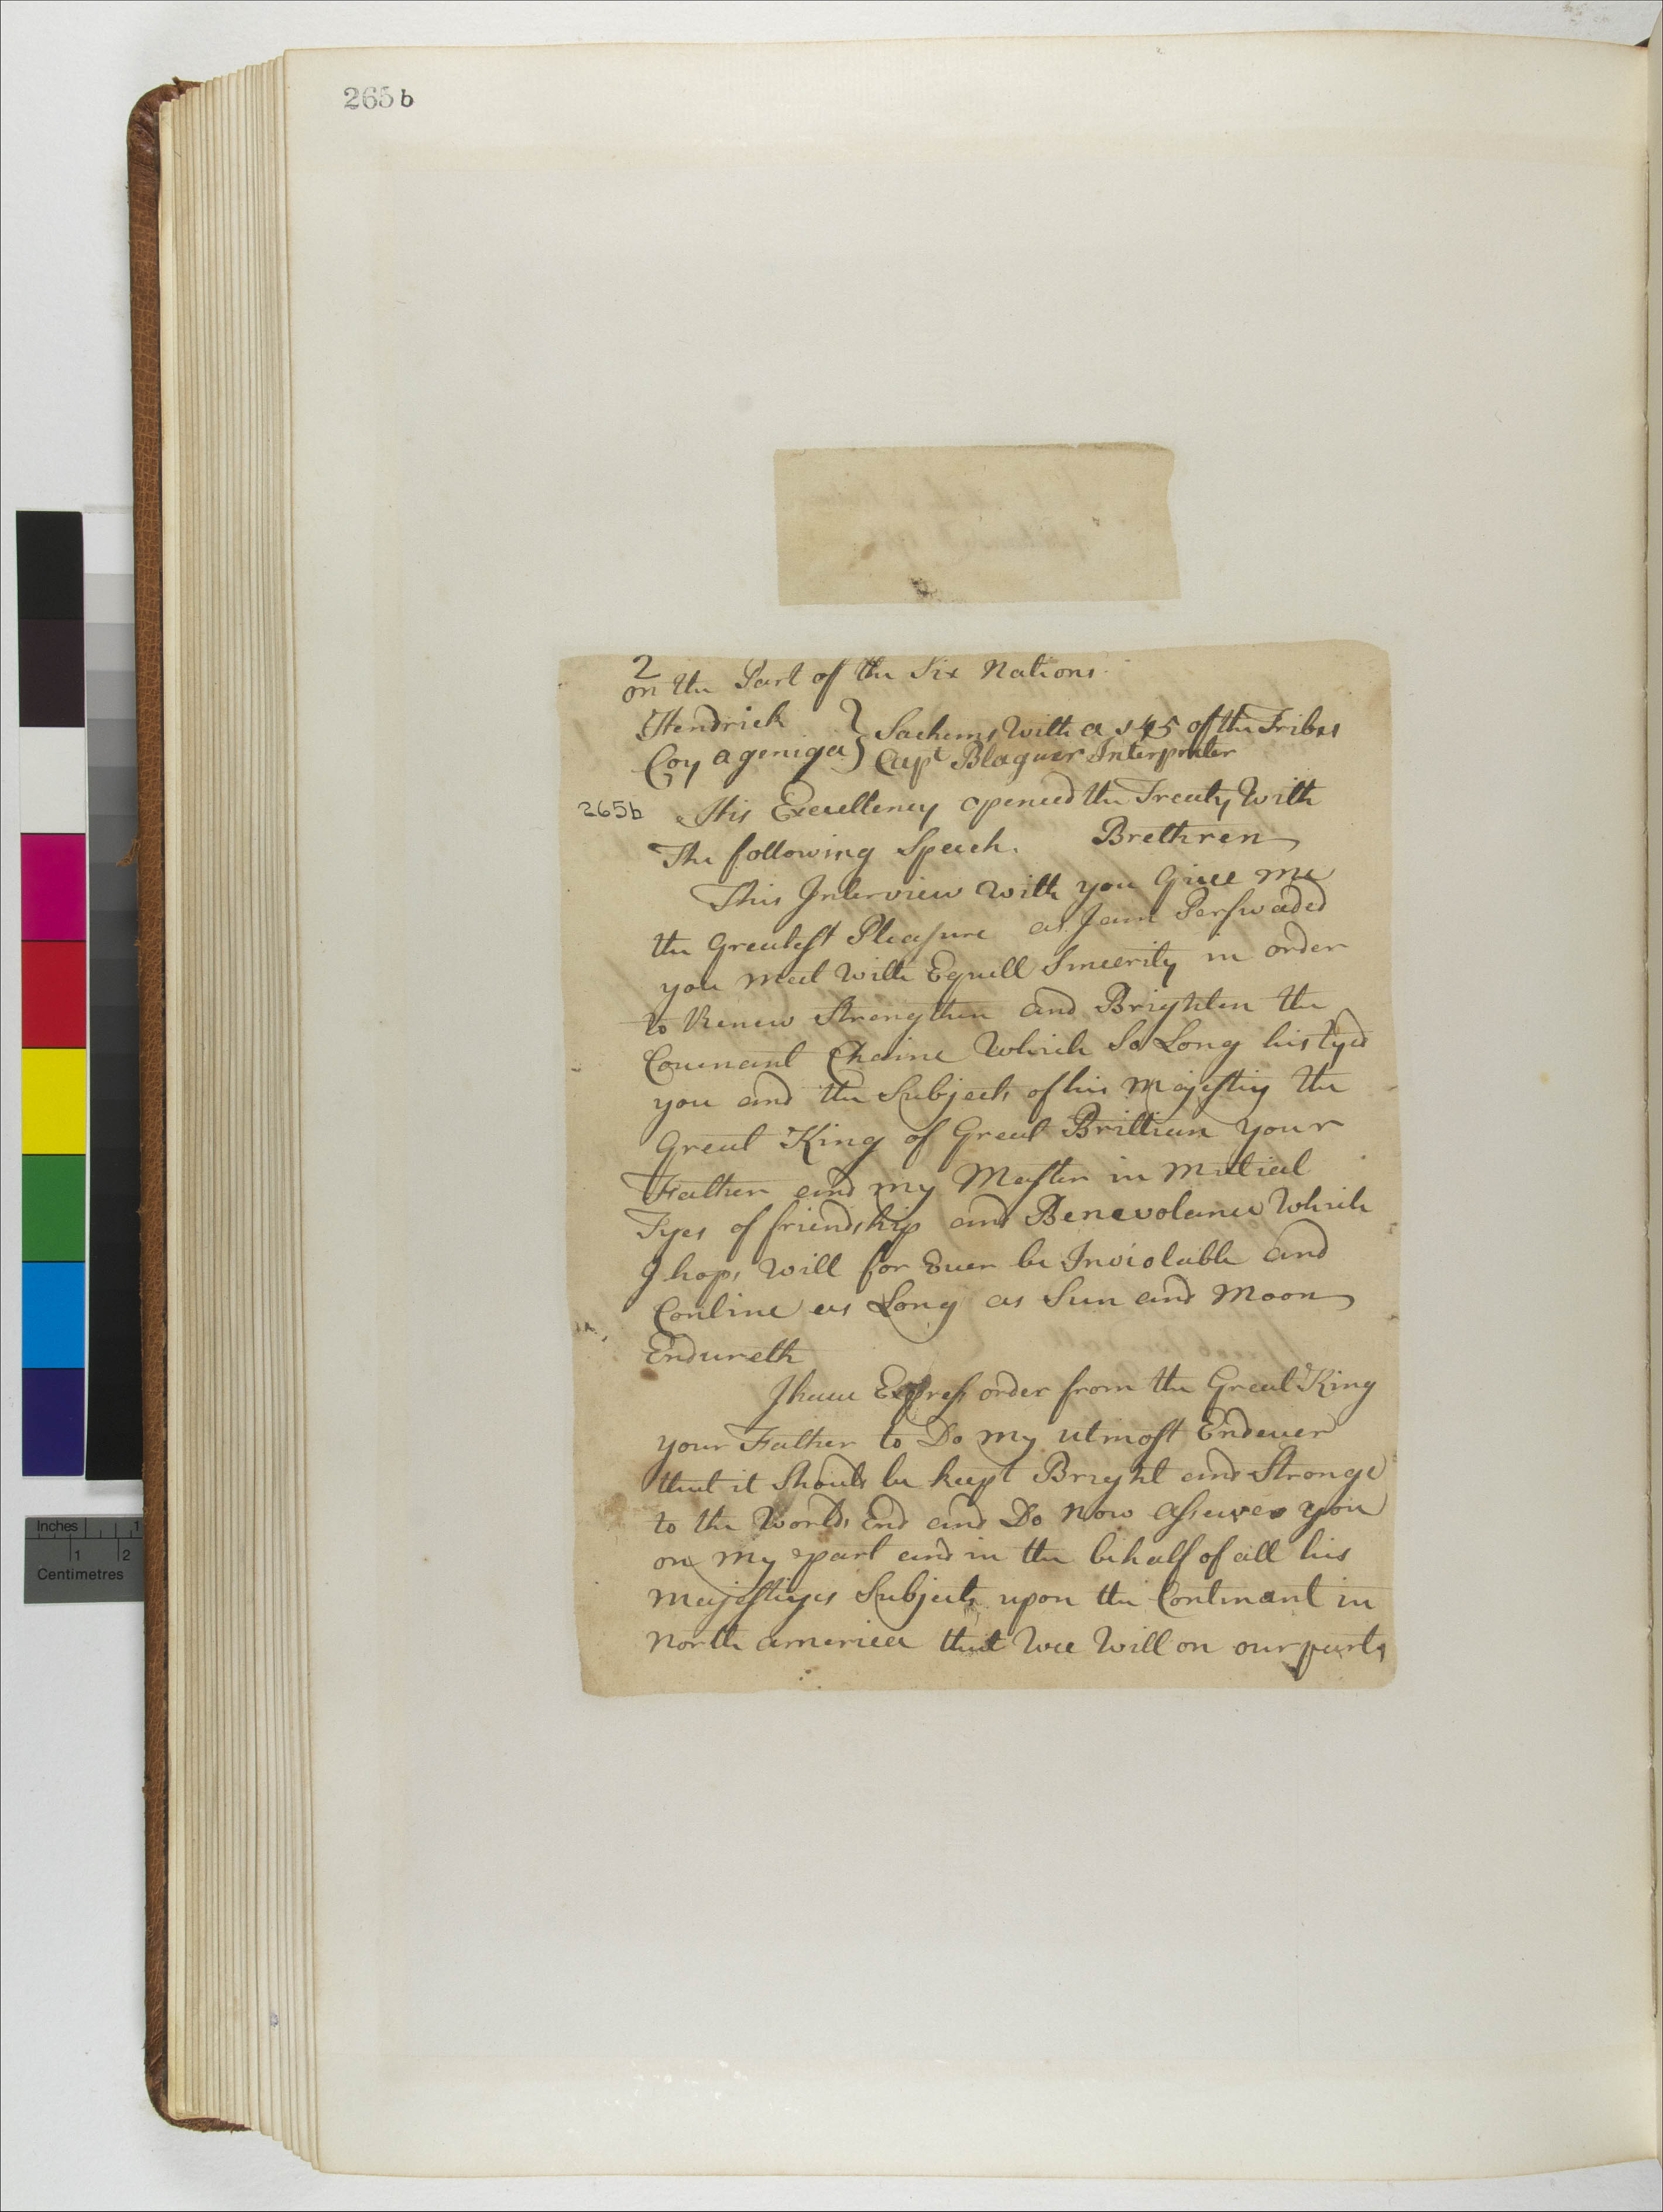 265 b
2
on the Part of the Six Nations
Hendrick } Sachems With a 145 of the Tribes
Coy ageniga } Capt Blaguer Interpreter
265b His Excellency opened the Treaty With
The following Speech. Brethren
This Interview with you Give me
the Greatest Pleasure as I am Perswaded
you meet With Equell Sincerity in order
to Renew Strengthen and Brighten the
Couenant Chaine Which So Long his tyed
you and the Subjects of his Majestiy the
Great King of Great Brittian your
Father and my Master in Mutial
Tyes of friendship and Benevolance Which
I hops Will for Euer be Inviolable and
Contine as Long as Sun and Moon
Endureth
I haue Express order from the Great King
your Father to Do my utmost Endeuer
that it Should be keept Bright and Stronge
to the Worlds End and Do now assurer you
on my part and in the bihalf of all his
Majestiyes Subjects upon the Continant in
North america that Wee Will on our parts
Inches 1
1 2
Centimetres